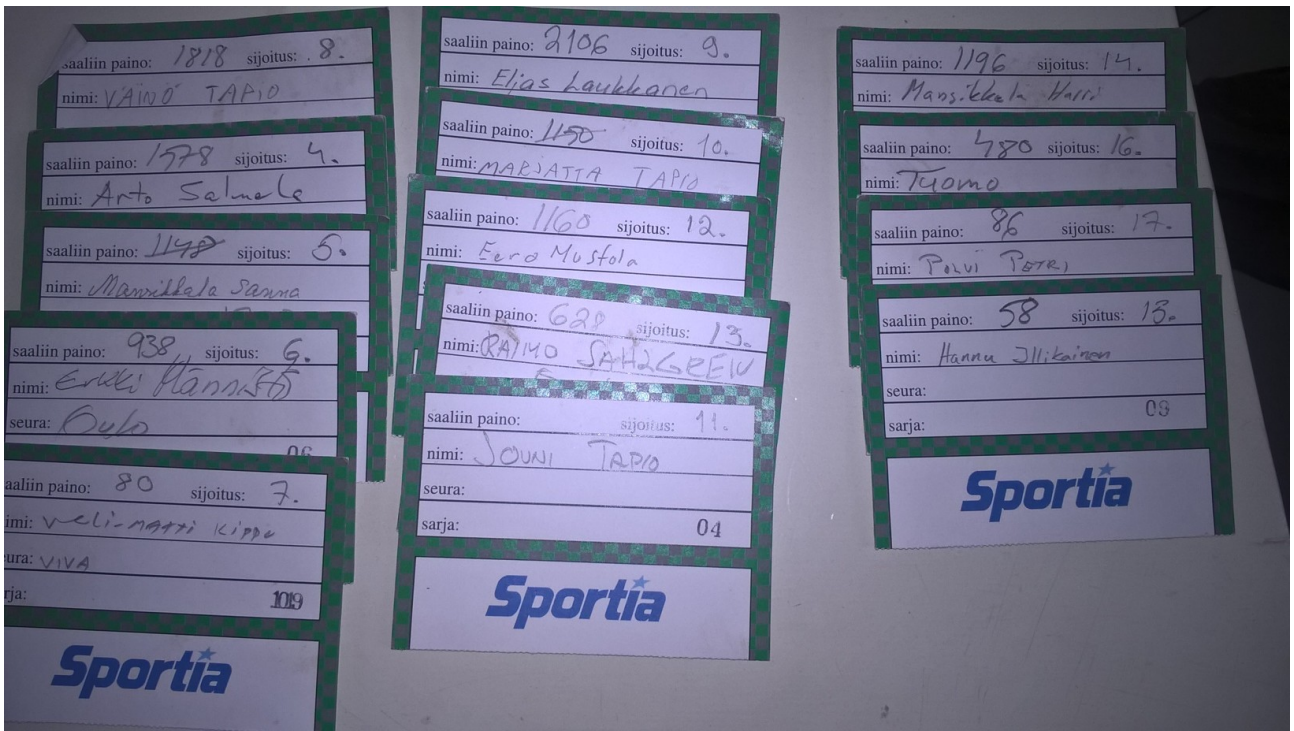 saaliin paino: 1818 sijoitus: 8.
nimi: VÄINÖ TAPIO
saaliin paino: 1578 sijoitus: 4.
nimi: Arto Salmela
saaliin paino: 1148 sijoitus: 5.
nimi: Mansikkala Sanna
saaliin paino: 938 sijoitus: 6.
nimi: Erkki Männistö
seura: Oulo
06
aaliin paino: 80 sijoitus: 7.
imi: Veli-Matti Kippo
ura: VIVA
rja: 1019
Sportia
saaliin paino: 2106 sijoitus: 9.
nimi: Elias Laukkanen
saaliin paino: 1150 sijoitus: 10.
nimi: MARJATTA TAPIO
saaliin paino: 1160 sijoitus: 12.
nimi: Eero Mustola
saaliin paino: 628 sijoitus: 13.
nimi: RAIMO SAHLGREN
saaliin paino: sijoitus: 11.
nimi: JOUNI TAPIO
seura:
sarja: 04
Sportia
saaliin paino: 1196 sijoitus: 14.
nimi: Mansikkala Harri
saaliin paino: 480 sijoitus: 16.
nimi: Tuomo
saaliin paino: 86 sijoitus: 17.
nimi: POLVI PETRI
saaliin paino: 58 sijoitus: 13.
nimi: Hannu Illikainen
seura:
sarja: 09
Sportia